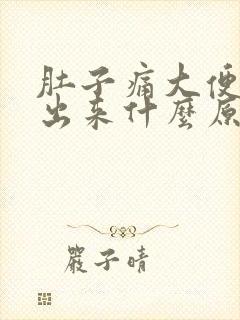 肚子痛大便
出来什麼原
嚴子晴